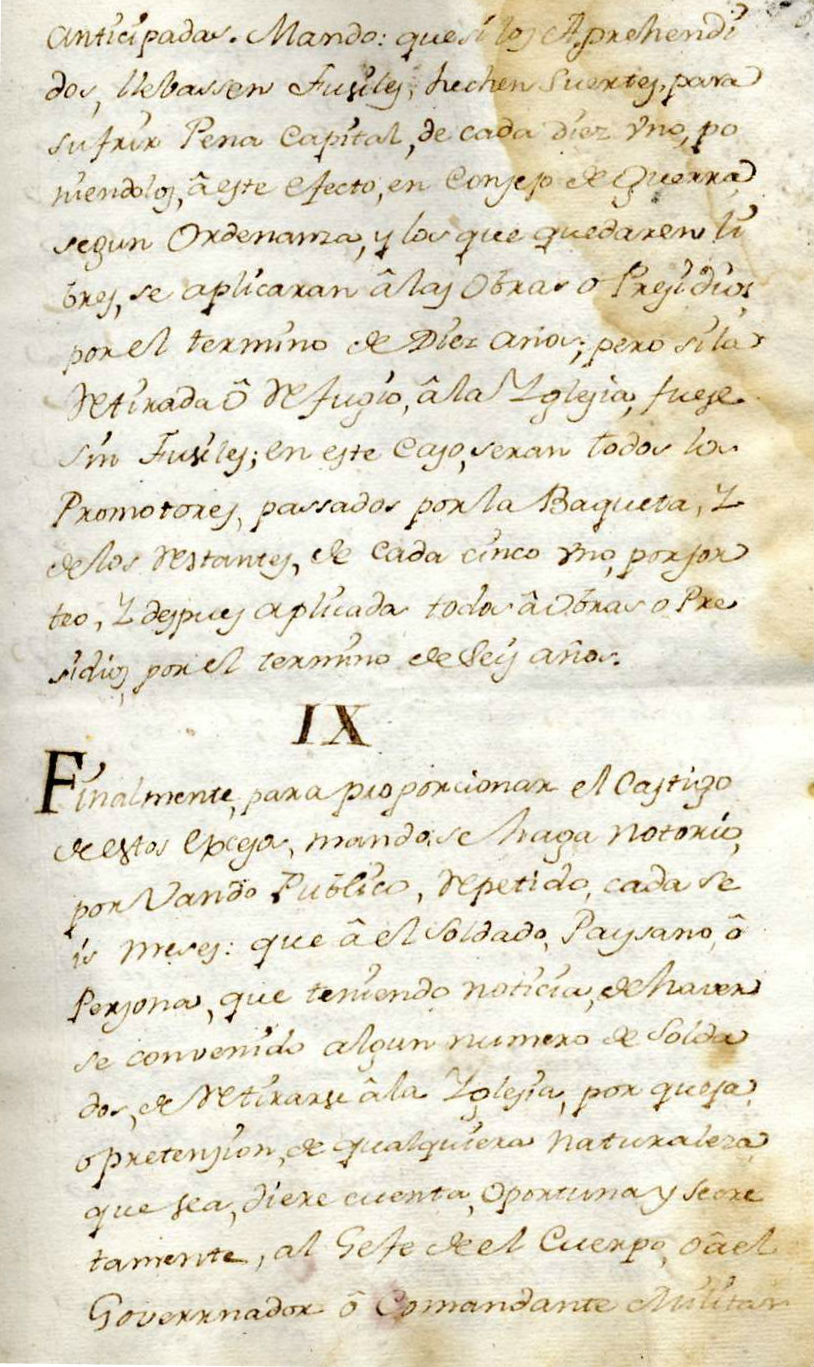 anticipadas. Mando: que si los Aprehendi
dos, llebassen Fusiles, hechen Suertes, para
sufrir Pena Capital, de cada diez vno, po
niendolos, â este efecto, en Consejo de Guerra
segun Ordenanza, y los que quedaren li
bres, se aplicaran â las Obras o Presidios
por el termino de Diez años; pero si la
Retirada ô Refugio, â la Yglesia, fuese
sin Fusiles; en este Caso, seran todos los
Promotores, passados por la Baqueta, Y
de los Restantes, de cada cinco vno, por sor
teo, Y despues aplicados todos â Obras o Pre
sidios por el termino de Seis años.
IX
Finalmente, para proporcionar el Castigo
de estos Excesos, mando, se haga notorio,
por Vando Publico, Repetido, cada se
is meses: que â el Soldado, Paysano, ô
Persona, que teniendo noticia, de haver
se convenido algun numero de Solda
dos, de Retirarse â la Yglesia, por queja,
o pretension, de qualquiera naturaleza
que sea, diere cuenta, oportuna y secre
tamente, al Gefe de el Cuerpo, o â el
Governador ô Comandante Militar